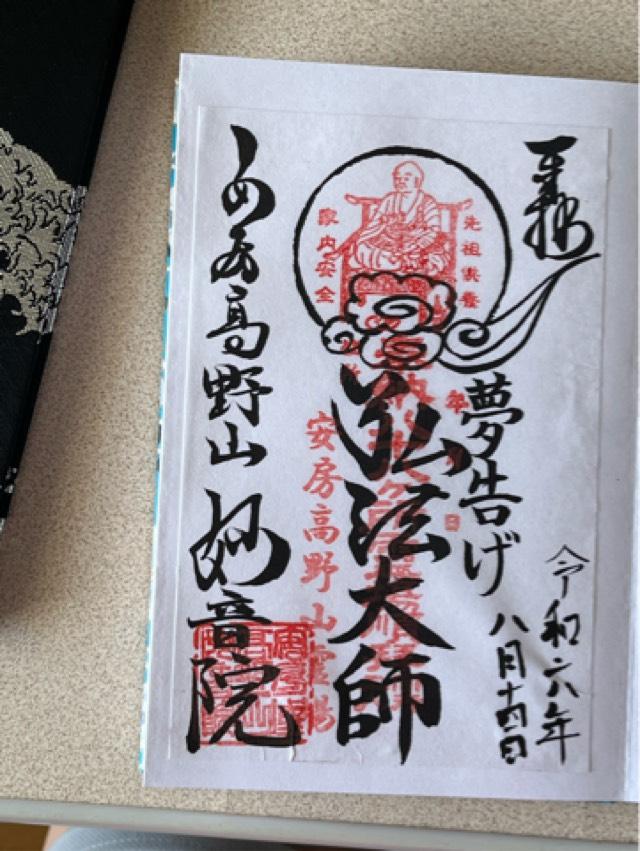 奉拝
令和六年
八月十四日
夢告げ
弘法大師
先祖供養
家内安全
安房高野山霊場
あわ高野山
妙音院